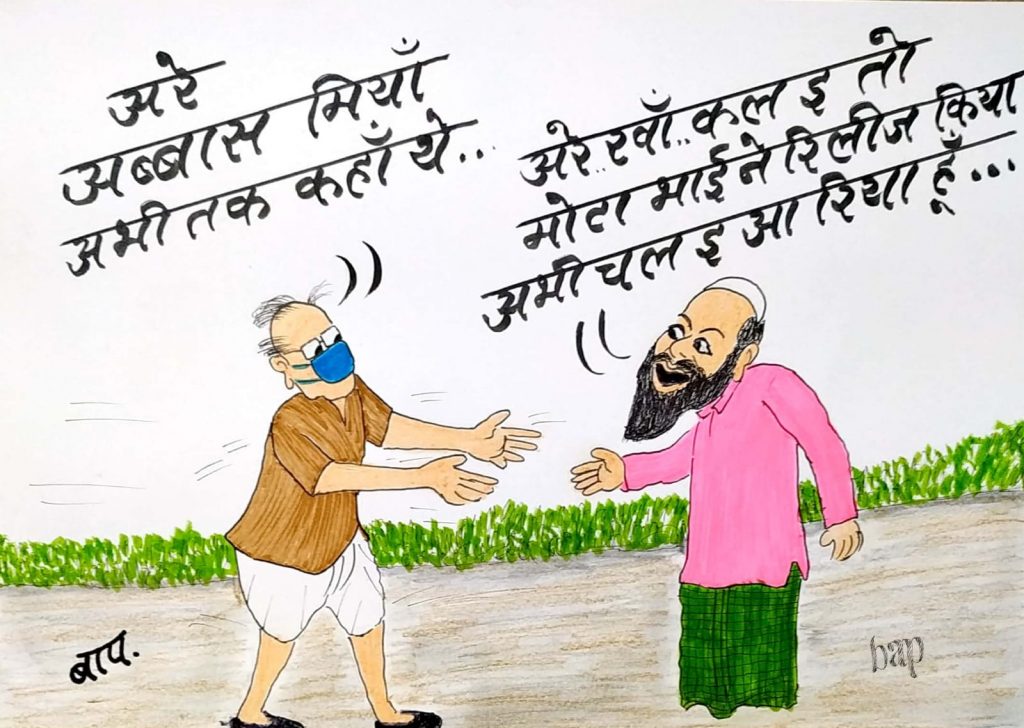 अरे
अब्बास मियाँ
अभी तक कहाँ थे..
अरे.. खाँ.. कल इ तो
मोटा भाई ने रिलीज किया
अभी चल इ आ रिया हूँ...
बाप.
bap